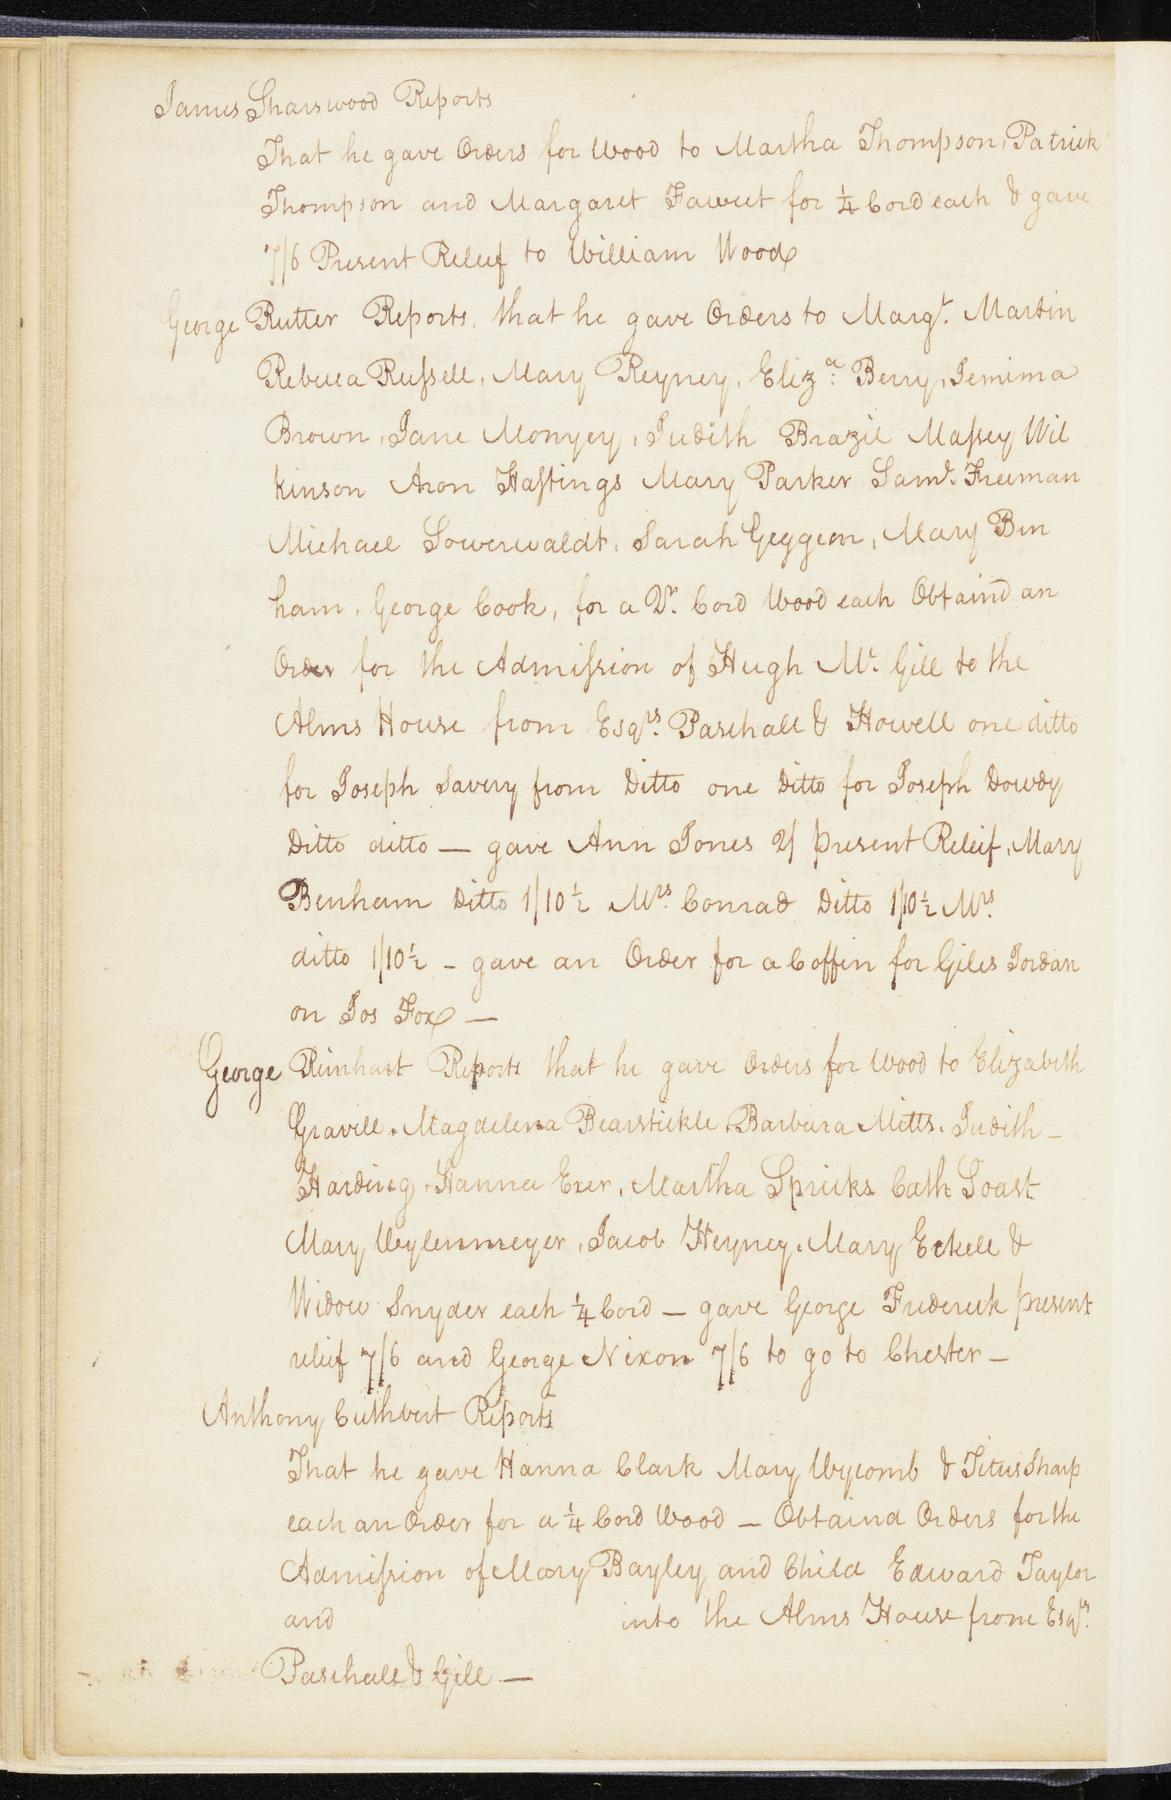 James Sharswood Reports
That he gave Orders for Wood to Martha Thompson, Patrick
Thompson and Margaret Fawcet for ¼ Cord each & gave
7/6 Present Releif to William Wood
George Rutter Reports, that he gave Orders to Margt. Martin
Rebecca Russell, Mary Reyney, Eliza. Berry, Jemima
Brown, Jane Monyey, Judith Brazil Massey Wil
kinson Aron Hastings Mary Parker Saml. Freeman
Michael Sowerwaldt, Sarah Geggeon, Mary Bin
ham, George Cook, for a Qr. Cord Wood each Obtaind an
Order for the Admission of Hugh Mc. Gill to the
Alms House from Esqrs. Paschall & Howell one ditto
for Joseph Savery from Ditto one Ditto for Joseph Dowdy
Ditto ditto — gave Ann Jones 2/ present Releif, Mary
Benham Ditto 1/10½ Mrs. Conrad Ditto 1/10½ Mrs.
ditto 1/10½ - gave an Order for a Coffin for Giles Jordan
on Jos Fox —
George Rinhart Reports that he gave Orders for Wood to Elizabeth
Gravill, Magdelena Bearstickle, Barbara Mitts, Judith -
Harding, Hanna Exer, Martha Spricks Cath Soast
Mary Weylenmeyer, Jacob Heyney, Mary Eckell &
Widow Snyder each ¼ Cord — gave George Frederick present
relief 7/6 and George Nixon 7/6 to go to Chester —
Anthony Cuthbert Reports
That he gave Hanna Clark Mary Wycomb & Titus Sharp
each an Order for a ¼ Cord Wood — Obtaind Orders for the
Admission of Mary Bayley and Child Edward Taylor
and into the Alms House from Esqrs.
Paschall & Gill —